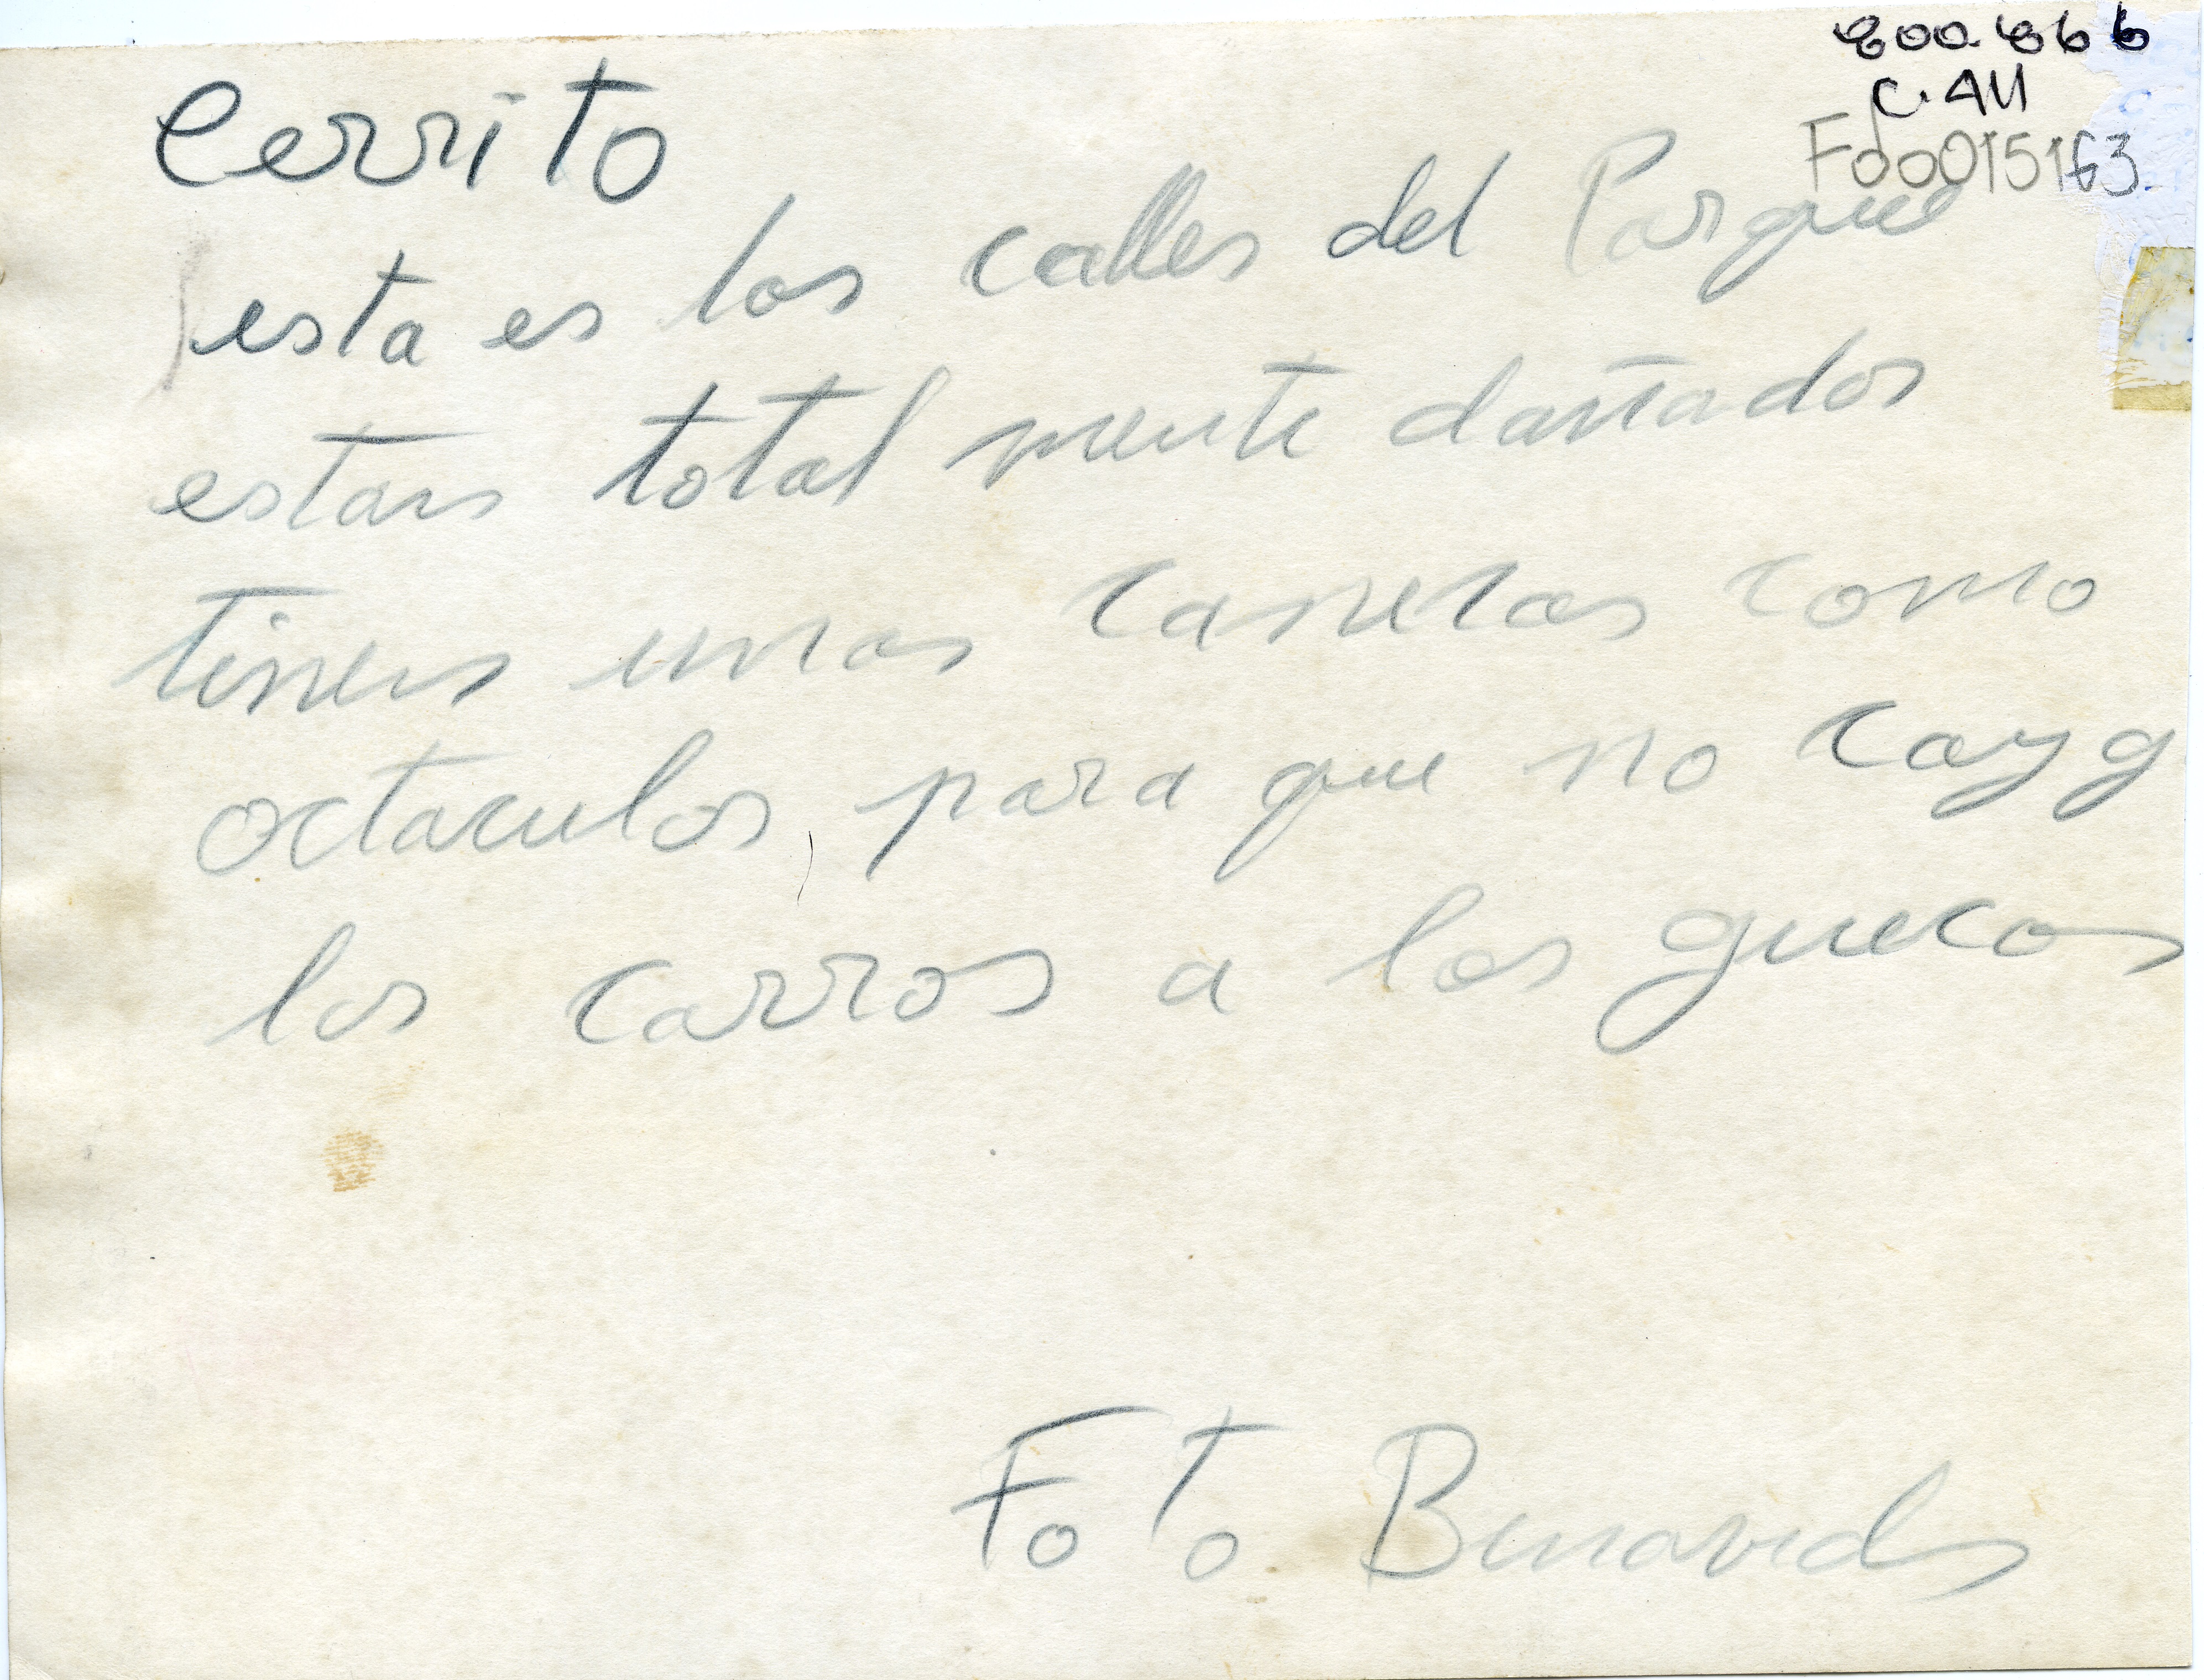 800.866
C.411
Fdo0015163
Cerrito
esta es las calles del Parque
estan total mente dañados
tinen unas canecas como
octaculos para que no cayg
los carros a los guecos
FoTo Benavides